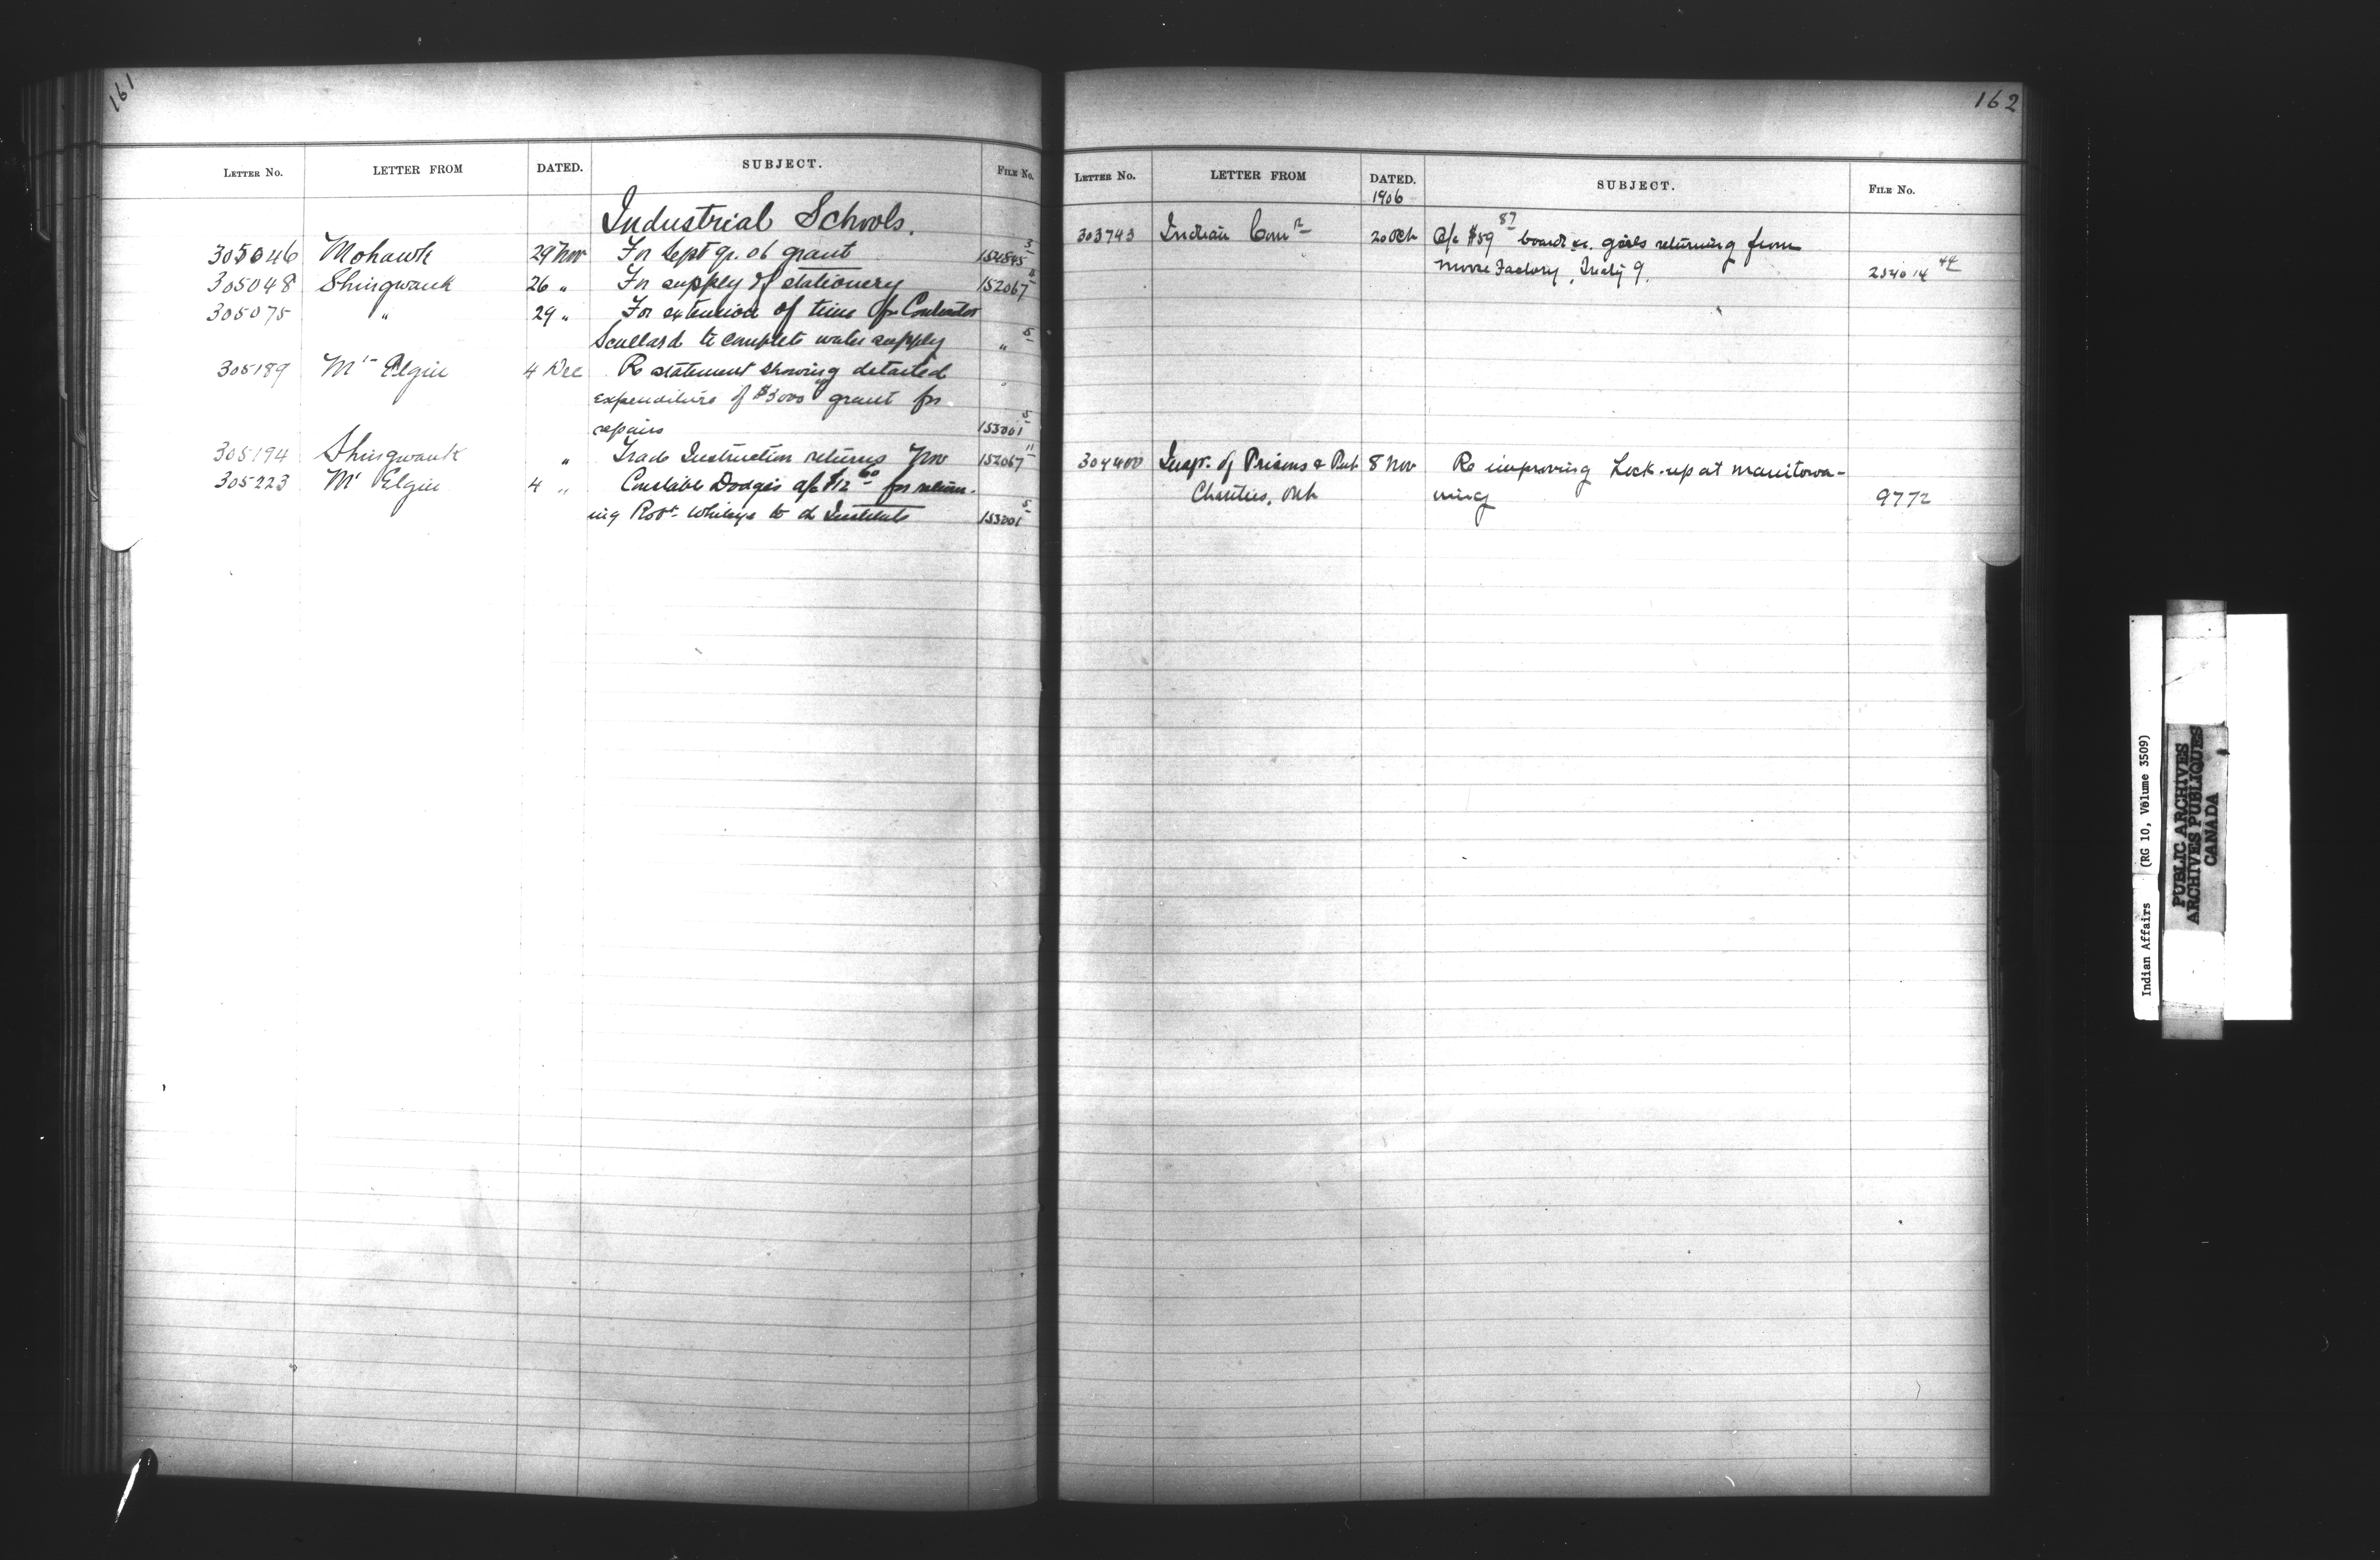 161
LETTER No. LETTER FROM DATED. SUBJECT. FILE No.
Industrial Schools.
305046 Mohawk 29 Nov For Sept qr. 06 grant
305048 Shingwauk 26 " For supply of stationery 152067
305075 " 29 " For extension of time for Contractor
Scullard to complete water supply " 5
305189 Mt Elgin 4 Dec Re statement showing detailed
expenditure of $3000 grant for
repairs 153001 5
305194 Shingwauk " Trade Instruction returns Nov 152067 11
305223 Mt Elgin 4 " Constable Dodges a/c $12 60 for return-
ing Robt to Institute 153001 5
162
LETTER No. LETTER FROM DATED. SUBJECT. FILE No.
1906
303743 Indian Comr 20 Oct a/c $59 87 board &c. girls returning from
Moose Factory, Treaty 9. 234014 44
304400 Insp. of Prisons & Pub. 8 Nov Re improving Lock-up at Manitowa-
Charities, Ont ning 9772
Indian Affairs (RG 10, Volume 3509)
PUBLIC ARCHIVES
ARCHIVES PUBLIQUES
CANADA